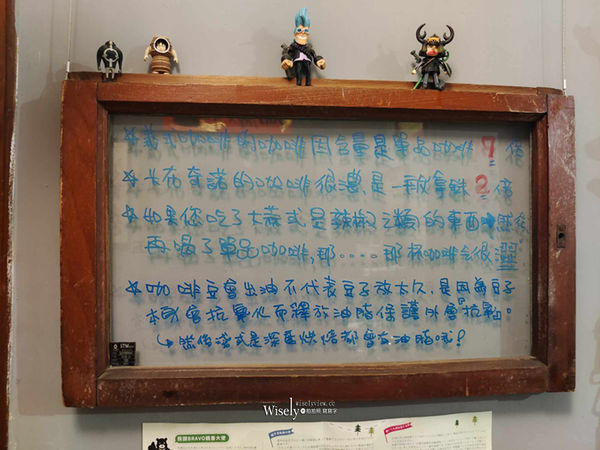 ☆義式咖啡的咖啡因含量是單品咖啡 7 倍
☆卡布奇諾的咖啡很濃,是一般拿鐵 2 倍
☆如果您吃了大蒜或是辣椒之類的東西,然後
再喝了單品咖啡,那....那杯咖啡會很"澀"
☆咖啡豆會出油不代表豆子放太久,是因為豆子
本身會抗氧化而釋放油脂保護外層"抗氧"。
或是深重烘焙都會有油脂哦?
wiselyview.cc
Wisely 拍拍照 寫寫字
BRAVO